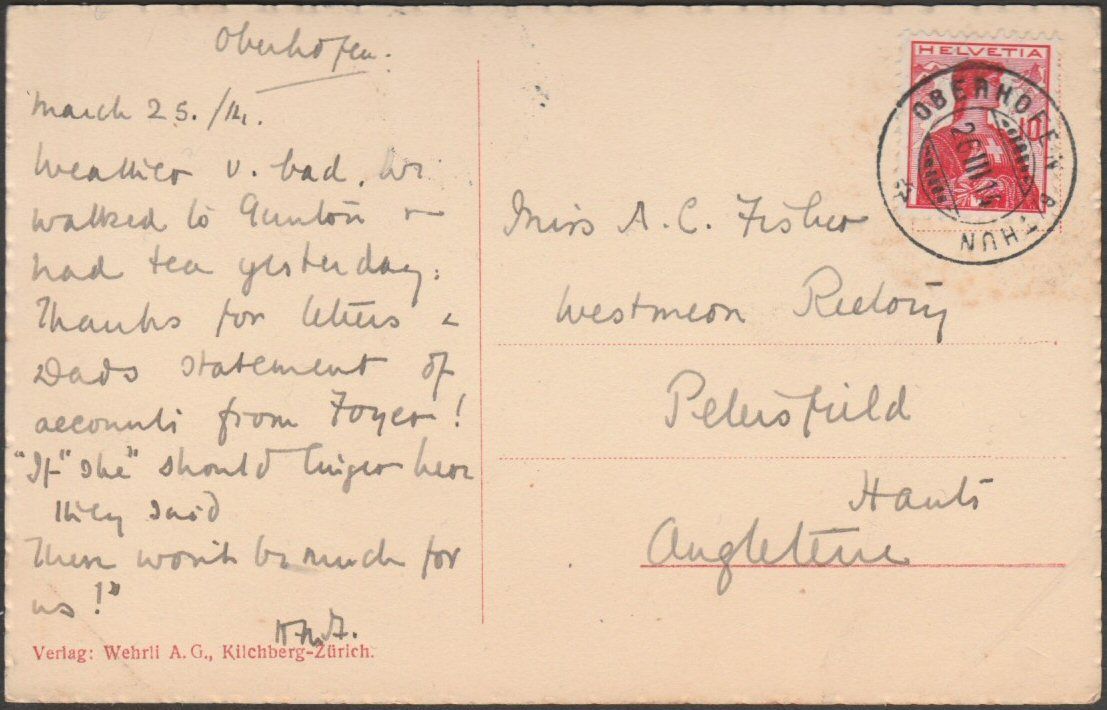 Oberhofen.
March 25./14.
Weather v. bad. We
walked to Gunten &
had tea yesterday.
Thanks for letters &
Dads statement of
accounts from Foyer!
"If "she" should linger here
they said
There won't be much for
us!"
Verlag: Wehrli A.G., Kilchberg-Zürich.
HELVETIA
10
OBERHOFEN B. THUN
26 III 14
Miss A. C. Fisher
Westmeon Rectory
Petersfield
Hants
Angleterre